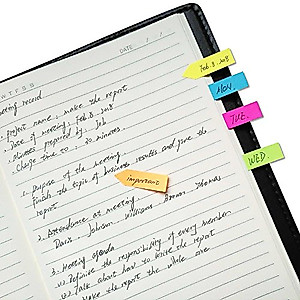 M T W T F S S
DATE / /
Meeting record
Project name: make the report
Date of meeting: Feb.8.2018
Minutes prepared by: Jack
Charge time to: 30 minutes.
1. Purpose of the meeting
Finish the topic of business results and give the
report
2. Attendance at meeting
Paris Johann Williams Brown Thomas
3. Meeting agenda
Definise the responsibility of every member
Talk about how to write the report
Make the report the whole one
important
Feb.8.2018
MON.
TUE.
WED.